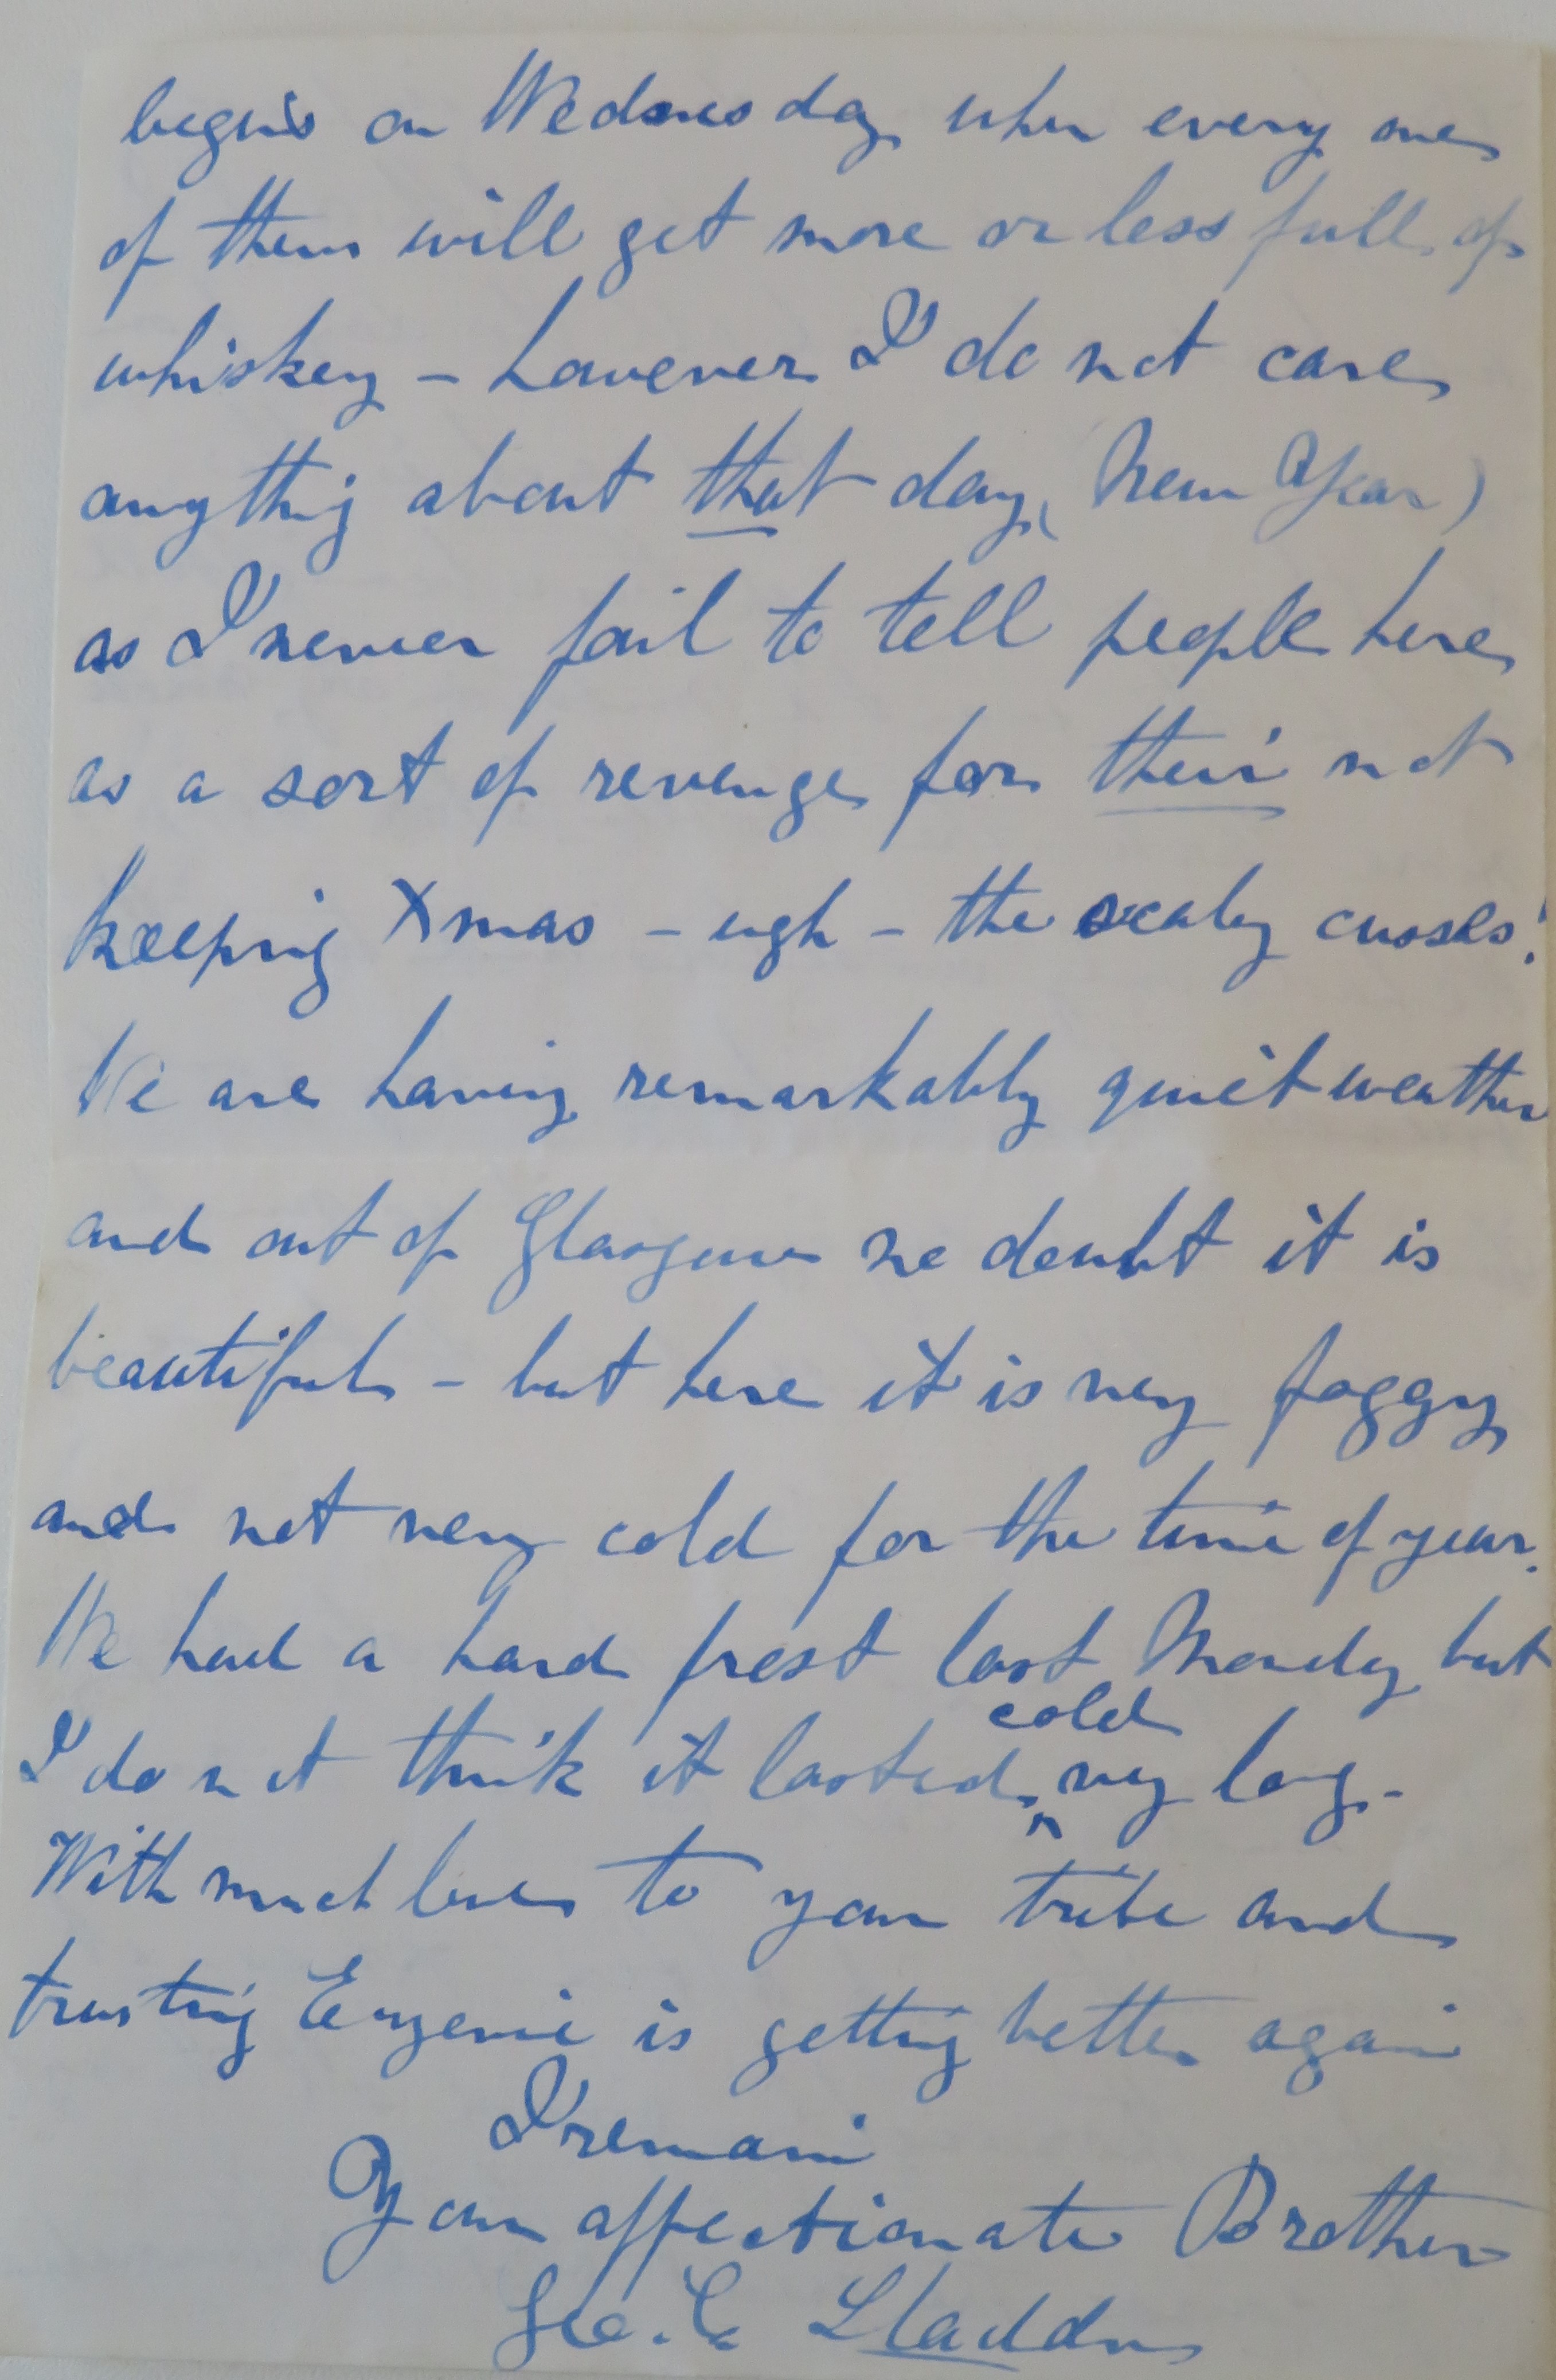 begins on Wednesday when every one
of them will get more or less full of
whiskey - however I do not care
anything about that day (New Year)
as I never fail to tell people here
as a sort of revenge for their not
keeping Xmas - ugh - the scaly cusses!
We are having remarkably quiet weather
and out of Glasgow no doubt it is
beautiful - but here it is very foggy
and not very cold for the time of year.
We had a hard frost last Monday but
I do not think it lasted cold very long -
With much love to your tribe and
trusting Eugenie is getting better again
I remain
Your affectionate Brother
Geo. C.